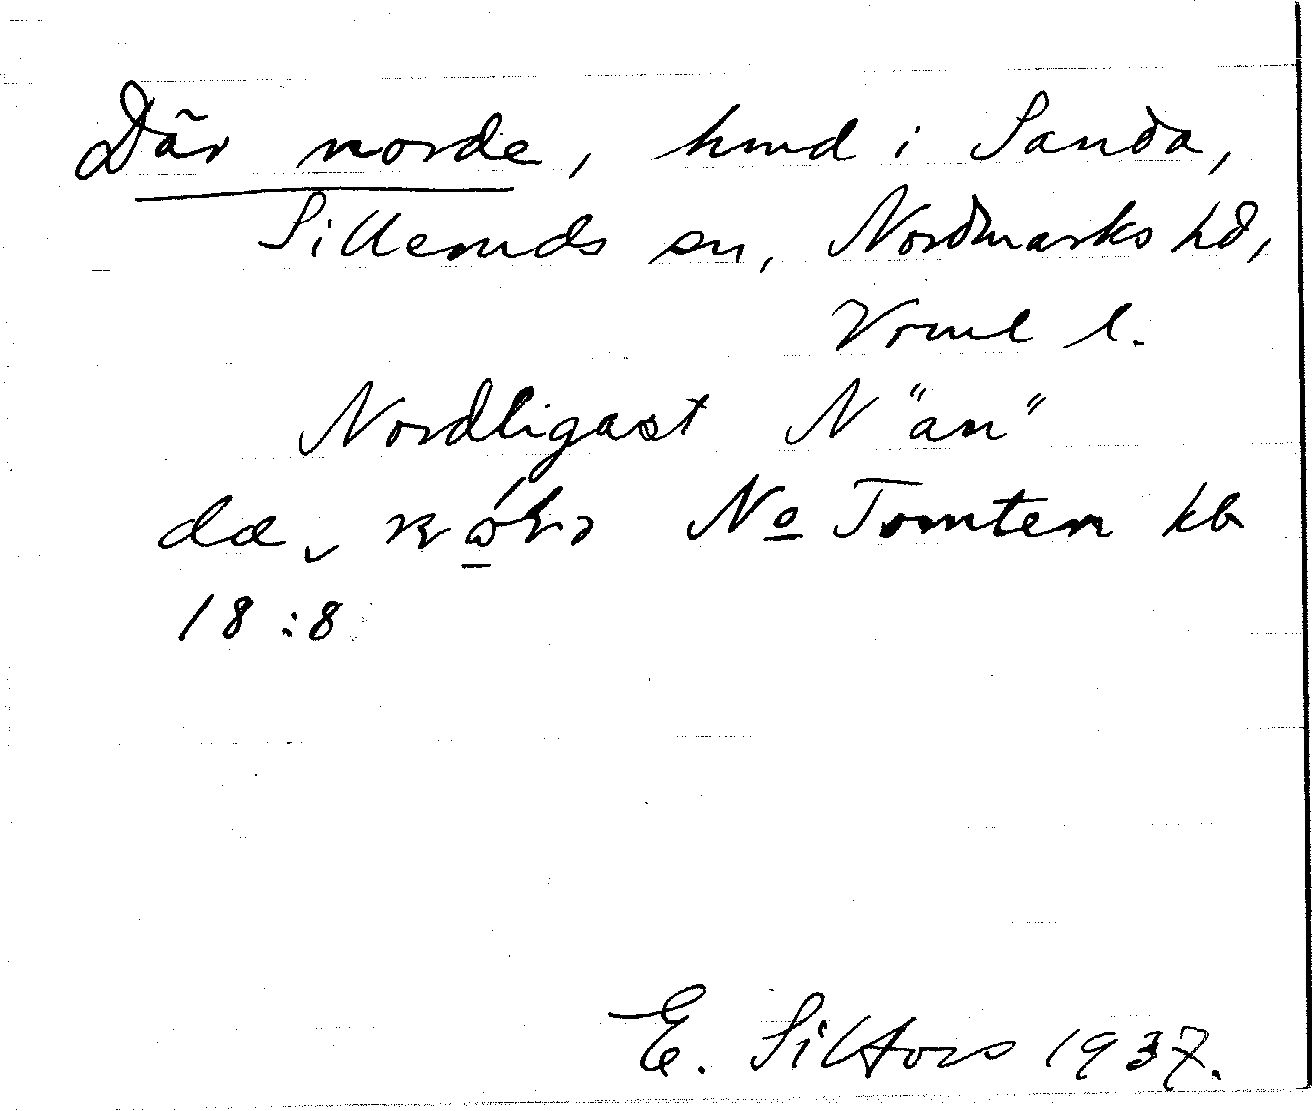 Där norde, hmd i Sanda,
Silleruds sn, Nordmarks hd,
Vrml l.
Nordligast N "än"
No Tomten kb
18:8
E. Silfors 1937.